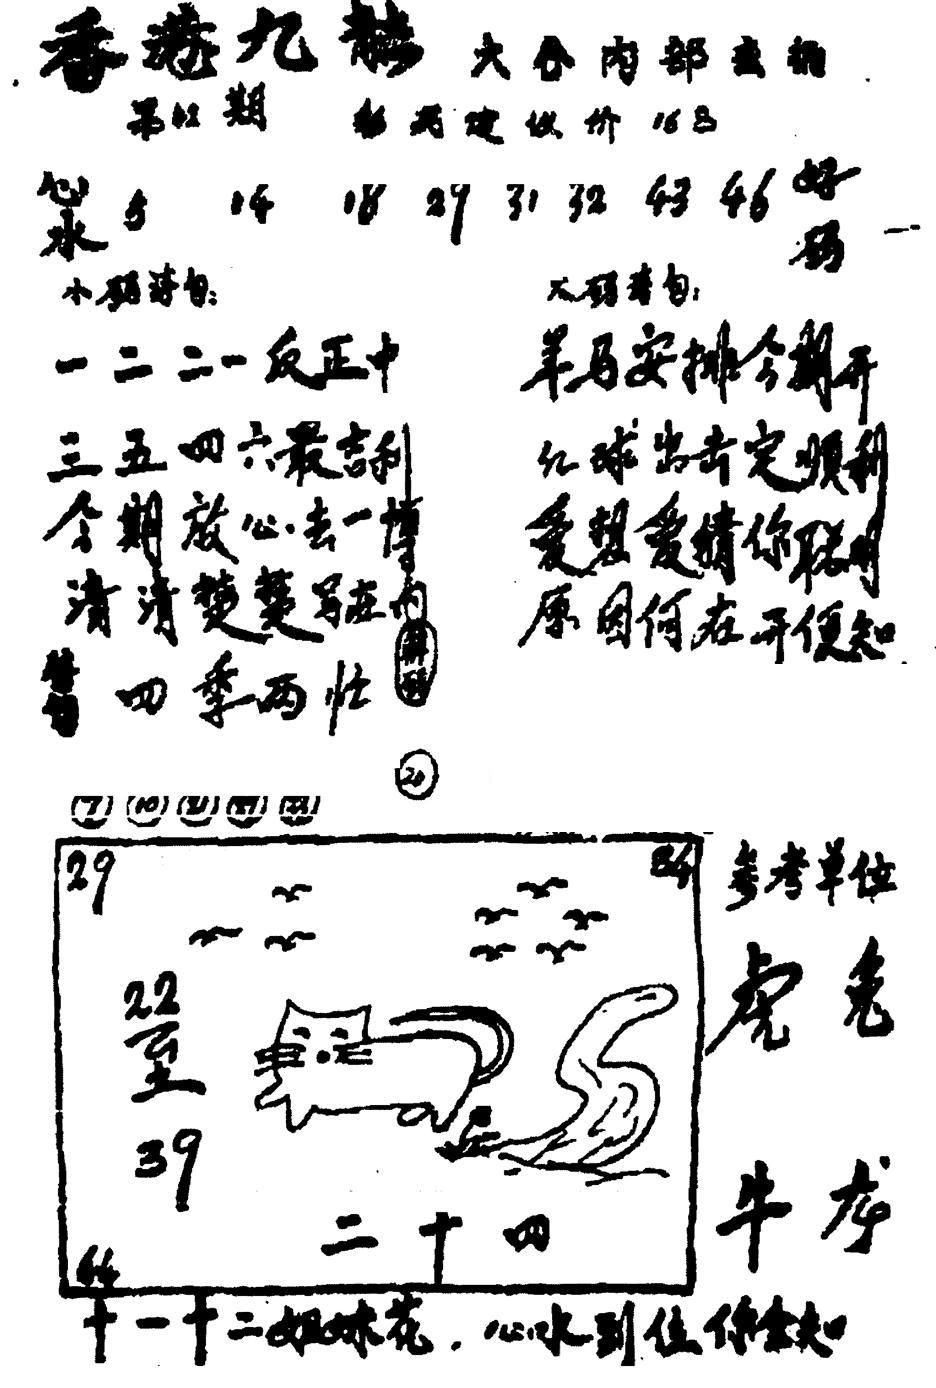 香港九龍 六合内部
第42期 建议价 16
心水 5 14 18 29 31 32 43 46 好码
小码诗句:
一二二一反正中
三五四六最吉利
今期放心去一博
清清楚楚写在内
四季两忙
大码诗句:
羊马安排今期开
红球出击定顺利
爱想爱猜你聪明
原因何在开便知
20
7 10 21 27
29 34
22
至
39
44
二十四
参考单位
虎 兔
牛 龙
十一十二姐妹花.心水到位你会知